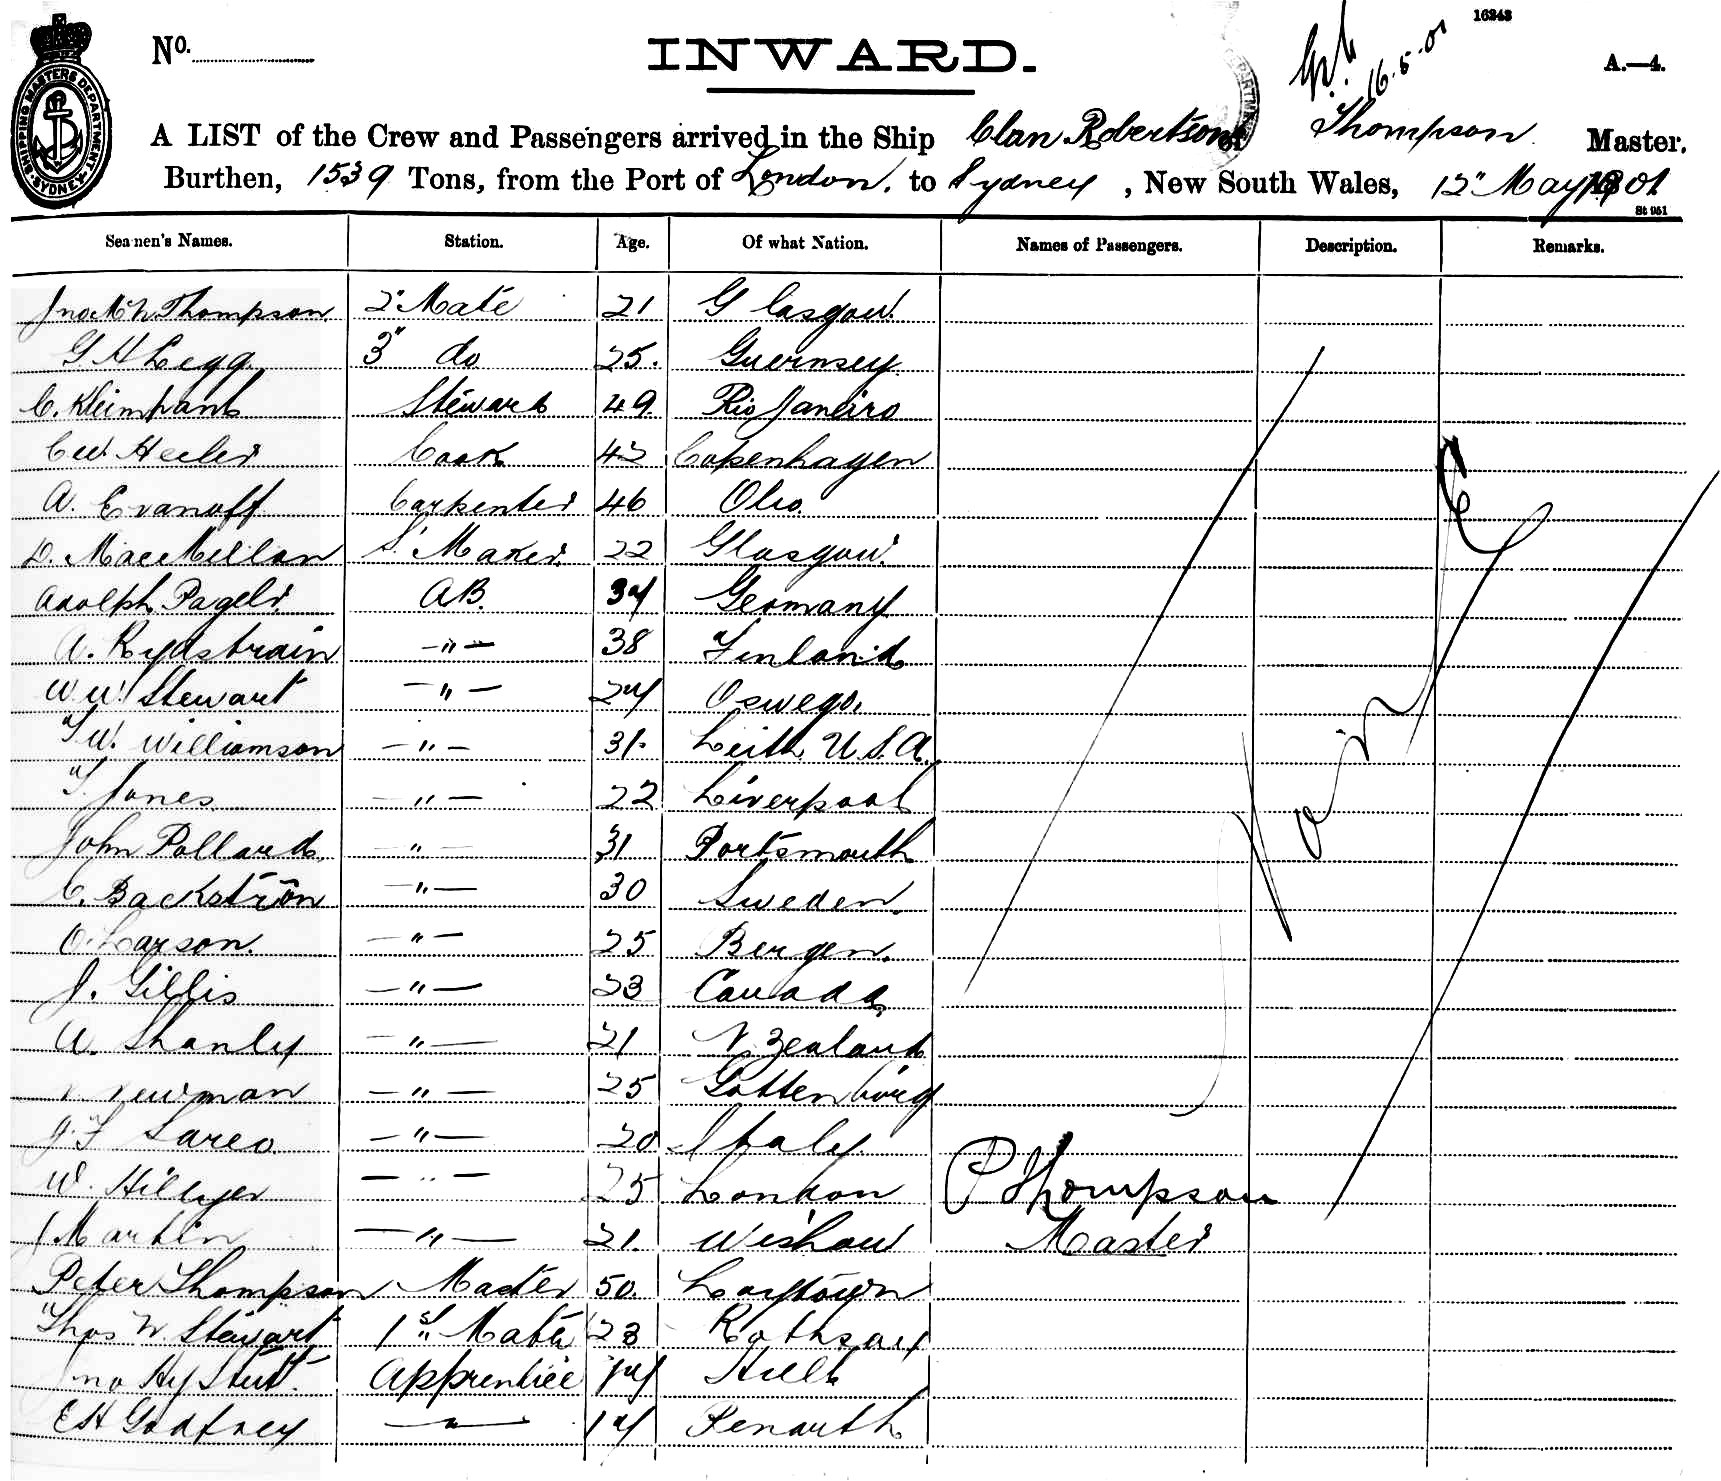 16243
16.5.01
No. INWARD. A.—4.
SHIPPING MASTERS DEPARTMENT SYDNEY
A LIST of the Crew and Passengers arrived in the Ship Clan Robertson of Thompson Master.
Burthen, 1539 Tons, from the Port of London. to Sydney, New South Wales, 12" May 1901
St 951
Seamen's Names. Station. Age. Of what Nation. Names of Passengers. Description. Remarks.
Jno Thompson 2" Mate 21 Glasgow
G H Legg 3" do 25. Guernsey
C. Steward 49 Rio Janeiro
C W Cook 42 Copenhagen
A. Evanoff Carpenter 46
D. MacMillan S. Maker 22 Glasgow
Adolph Pagels AB. 34 Germany
A. —"— 38 Finland
W. W. Stewart —"— 24 Oswego.
T W. Williamson —"— 31. Leith U.S.A.
T. Jones —"— 22 Liverpool
John Pollard —"— 31 Portsmouth
C. Backström —"— 30 Sweden.
O. Larson. —"— 25 Bergen.
J. Gillis —"— 23 Canada
A. Shanly —"— 21 N Zealand
Newman —"— 25 Gottenburg
J. F —"— 20 Italy
W. Hillyer —"— 25 London
J Martin —"— 21. Wishaw
Peter Thompson Master 50.
Thos W. Stewart 1st Mate 23 Rothsay
Jno Hy Apprentice Hull
E H Godfrey —"— Penarth
P Thompson
Master